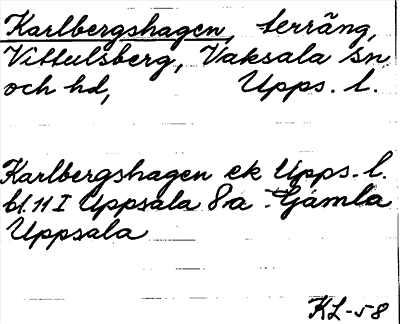 Karlbergshagen, terräng,
Vittulsberg, Vaksala sn
och hd, Upps. l.
Karlbergshagen ek Upps. l.
bl. 11 I Uppsala 8a Gamla
Uppsala
KL-58